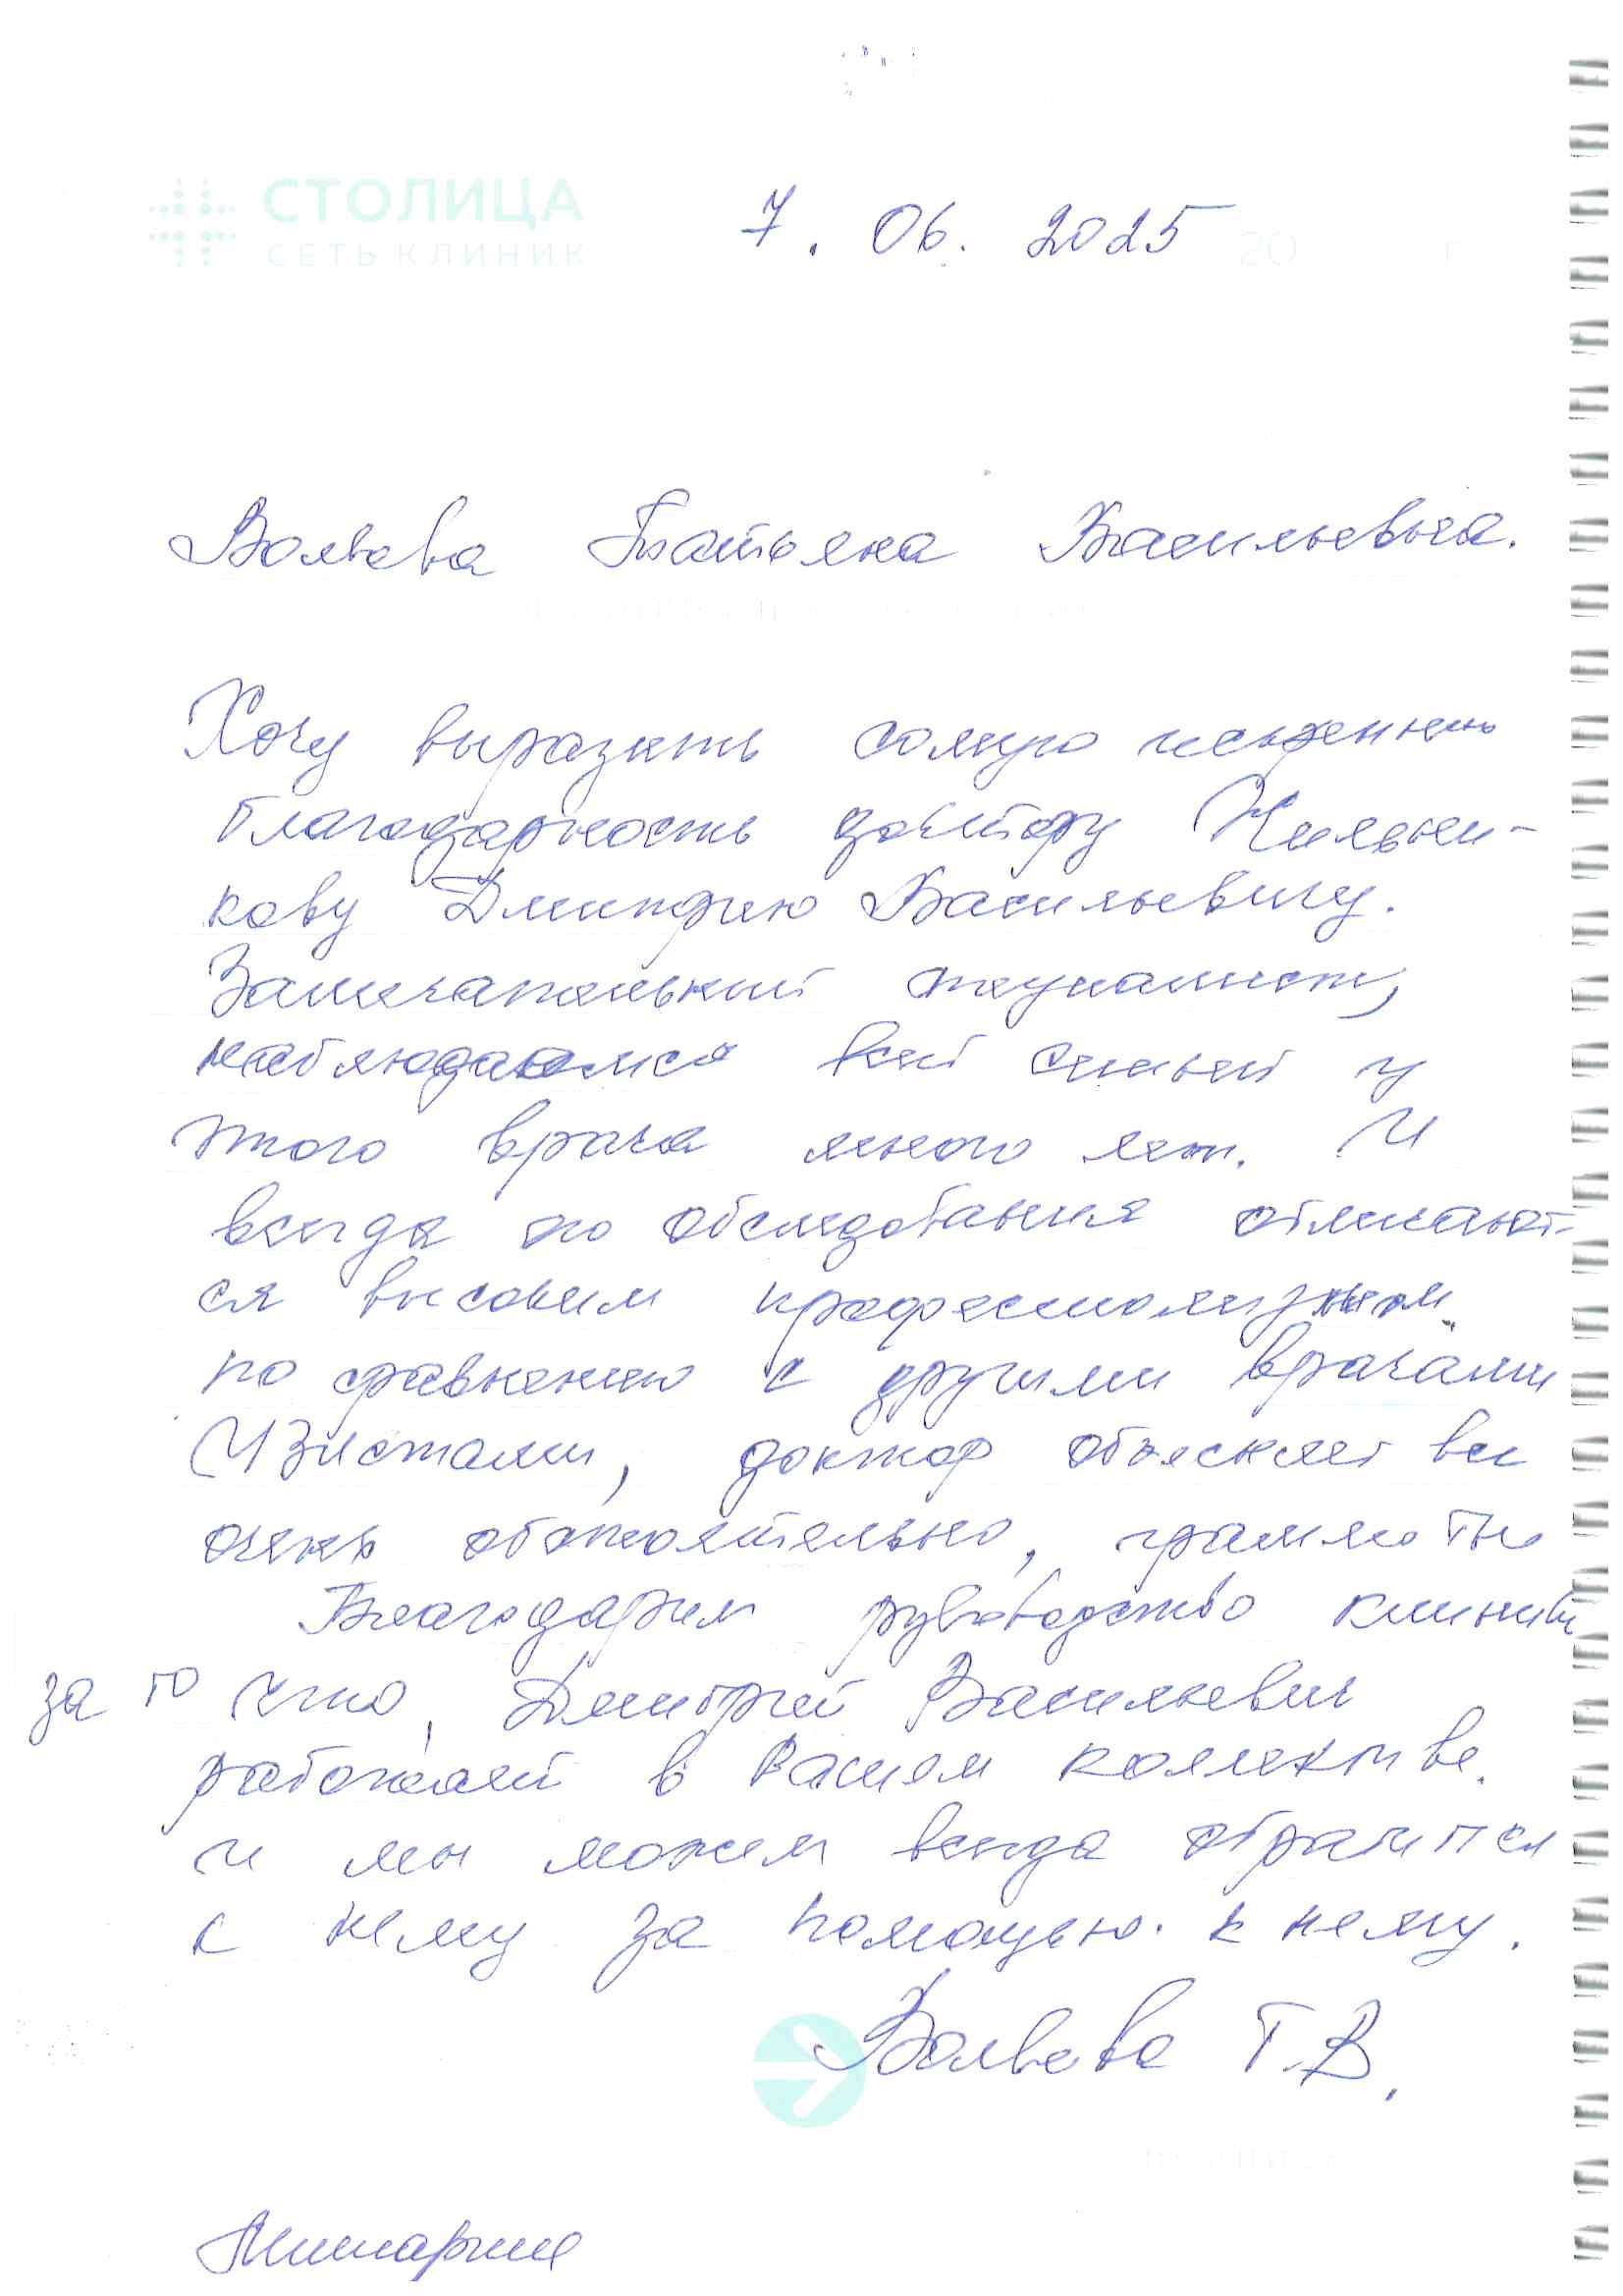 СТОЛИЦА
СЕТЬ КЛИНИК
7. 06. 2025
20 г
Татьяна Васильевна.
Хочу выразить самую искреннюю
благодарность доктору
кову Дмитрию Васильевичу.
Замечательный специалист,
наблюдаемся всей семьей у
этого врача много лет. И
всегда его обследования отличают-
ся высоким профессионализмом
по сравнению с другими врачами
УЗИстами, доктор объясняет все
очень обстоятельно, грамотно
Благодарим руководство клиники
за то что, Дмитрий Васильевич
работает в Вашем коллективе.
и мы можем всегда обратится
к нему за помощью. к нему.
Т.В.